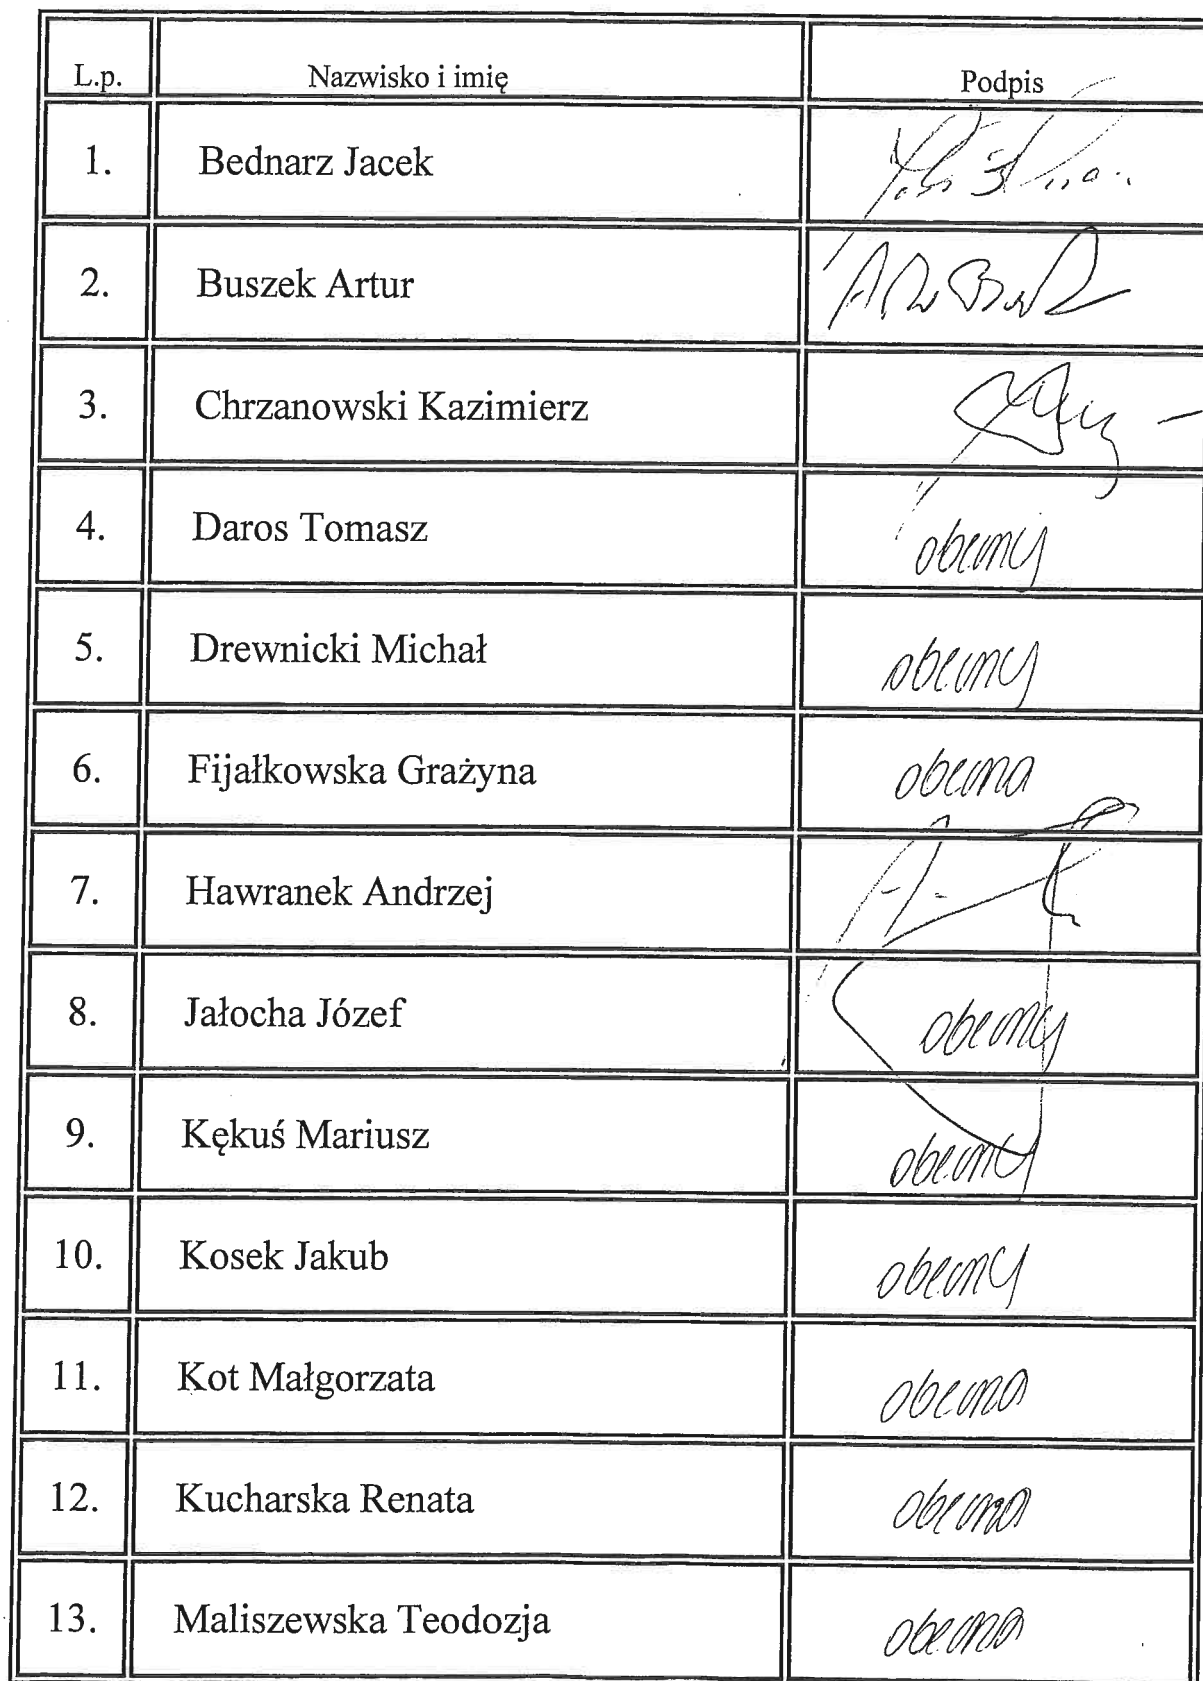 L.p. Nazwisko i imię Podpis
1. Bednarz Jacek
2. Buszek Artur
3. Chrzanowski Kazimierz
4. Daros Tomasz obecny
5. Drewnicki Michał obecny
6. Fijałkowska Grażyna obecna
7. Hawranek Andrzej
8. Jałocha Józef obecny
9. Kękuś Mariusz obecny
10. Kosek Jakub obecny
11. Kot Małgorzata obecna
12. Kucharska Renata obecna
13. Maliszewska Teodozja obecna